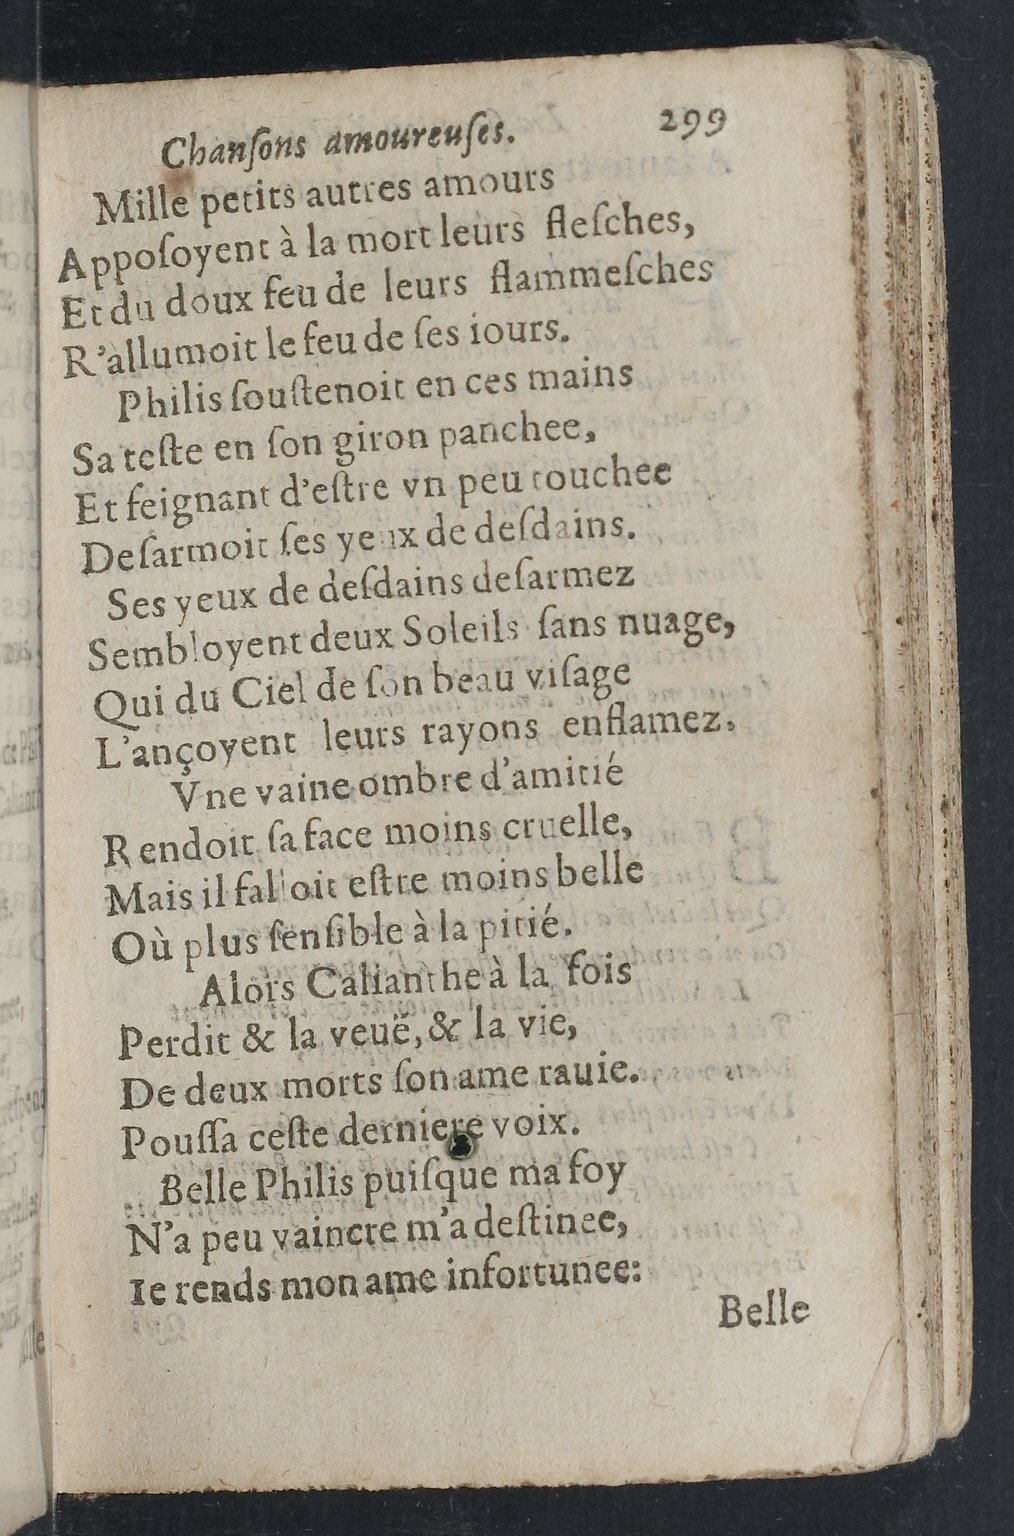 Chanſons amoureuſes. 299
Mille petits autres amours
Appoſoyent à la mort leurs fleſches,
Et du doux feu de leurs flammeſches
R'allumoit le feu de ſes iours.
Philis ſouſtenoit en ces mains
Sa teſte en ſon giron panchee,
Et feignant d'eſtre vn peu touchee
Deſarmoit ſes yeux de deſdains.
Ses yeux de deſdains deſarmez
Sembloyent deux Soleils ſans nuage,
Qui du Ciel de ſon beau viſage
L'ançoyent leurs rayons enflamez.
Vne vaine ombre d'amitié
Rendoit ſa face moins cruelle,
Mais il falloit eſtre moins belle
Où plus ſenſible à la pitié.
Alors Calianthe à la fois
Perdit & la veuë, & la vie,
De deux morts ſon ame rauie.
Pouſſa ceſte derniere voix.
Belle Philis puiſque ma foy
N'a peu vaincre m'a deſtinee,
Ie rends mon ame infortunee:
Belle